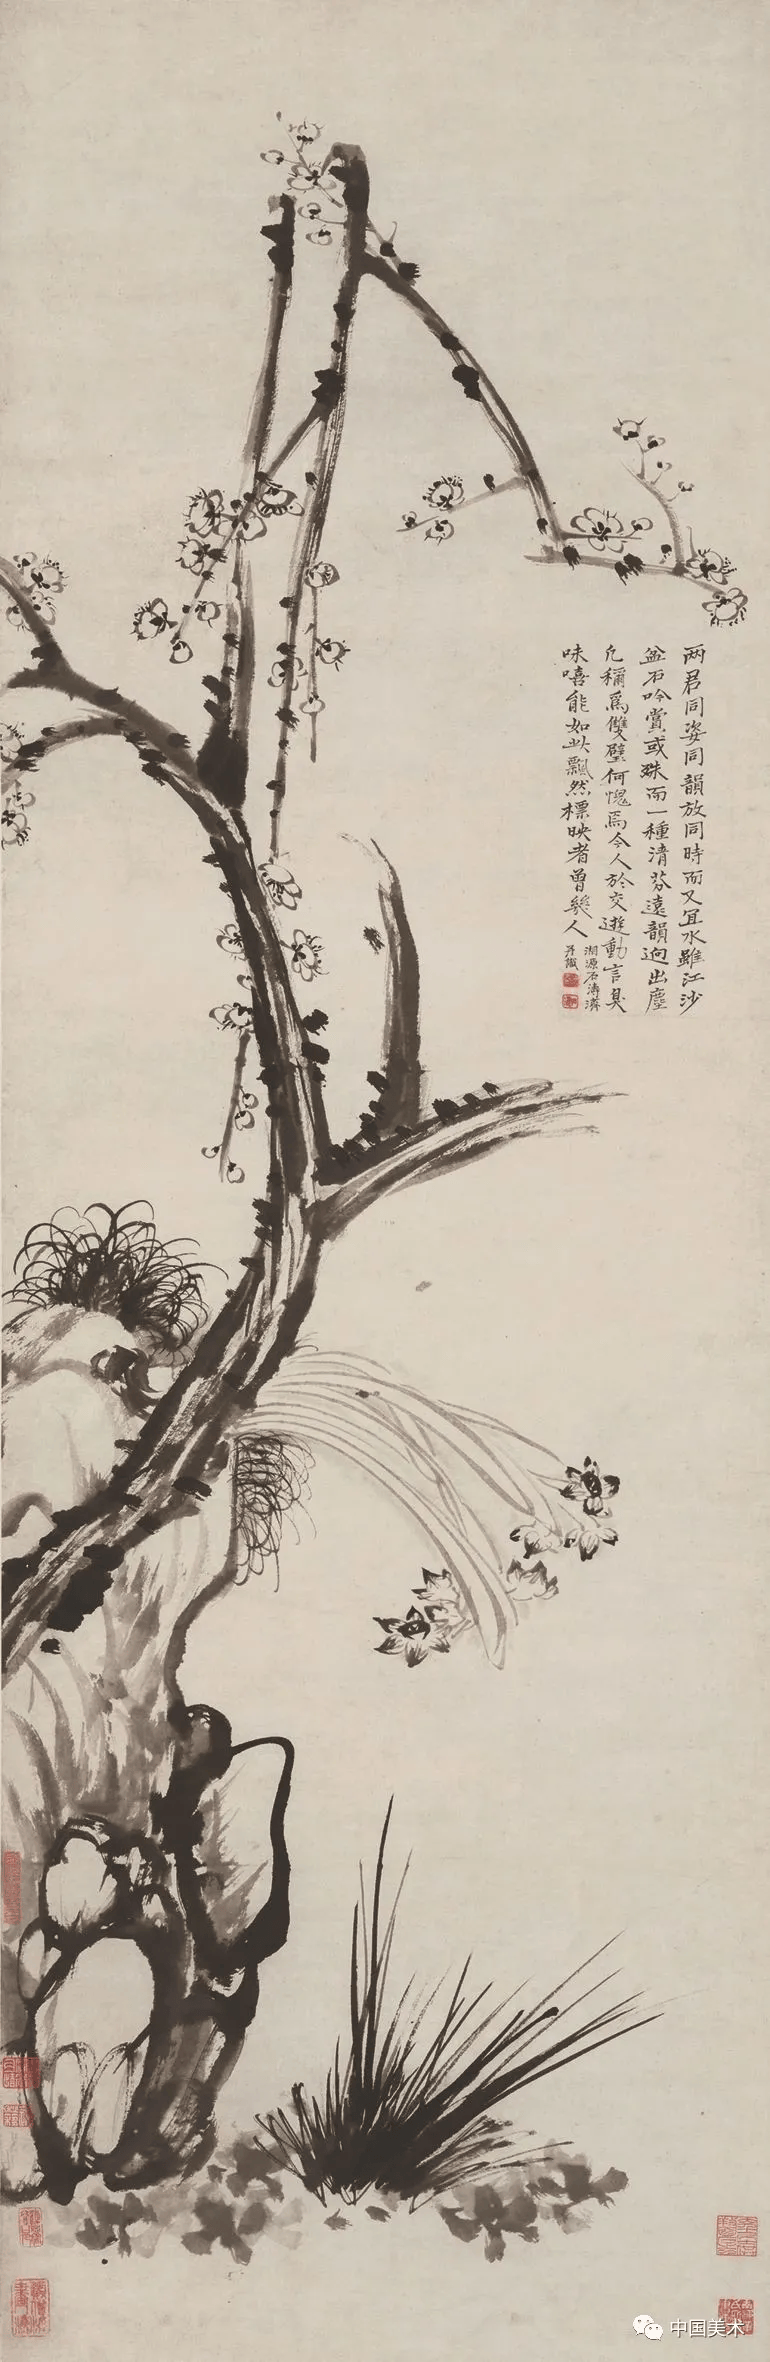 两君同姿同韻放同時而又宜水雖江沙
盆石吟賞或殊而一種清芬遠韻逈出塵
凢稱為雙璧何愧焉今人於交遊動言臭
味嘻能如此飄然標映者曾幾人
湘源石濤濟
并識
中国美术